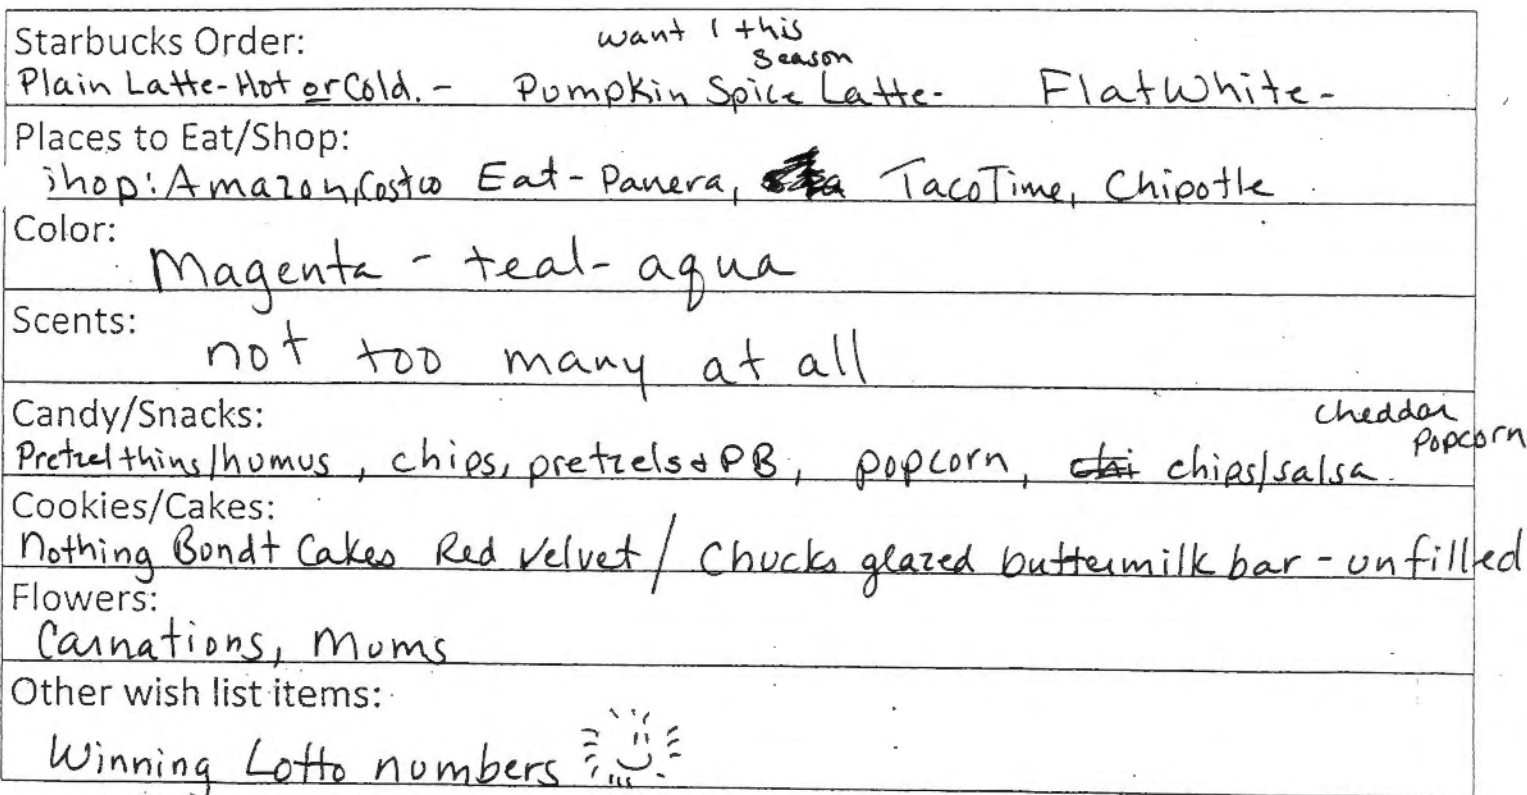 Starbucks Order:
want 1 this
season
Plain Latte-Hot or Cold. - Pumpkin Spice Latte- Flat White-
Places to Eat/Shop:
shop: Amazon, Costco Eat - Panera, Taco Time, Chipotle
Color:
Magenta - teal - aqua
Scents:
not too many at all
Candy/Snacks:
cheddar
popcorn
Pretzel thins/humus, chips, pretzels & PB, popcorn, chips/salsa.
Cookies/Cakes:
Nothing Bundt Cakes Red Velvet / Chucks glazed buttermilk bar - unfilled
Flowers:
Carnations, Mums
Other wish list items:
Winning Lotto numbers